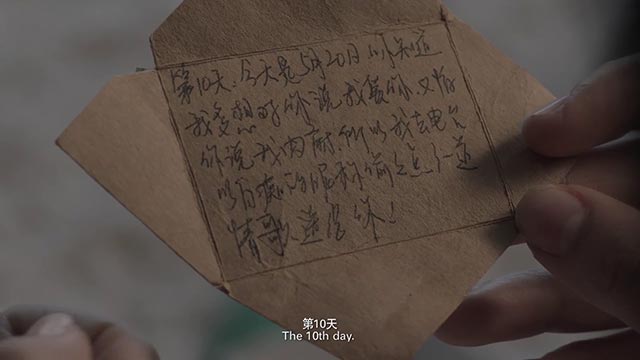 第10天:今天是5月20日 你知道
我多想对你说我爱你.又怕
你说我肉麻.所以我去电台
以白痴的昵称
情歌 送给你!
第10天
The 10th day.